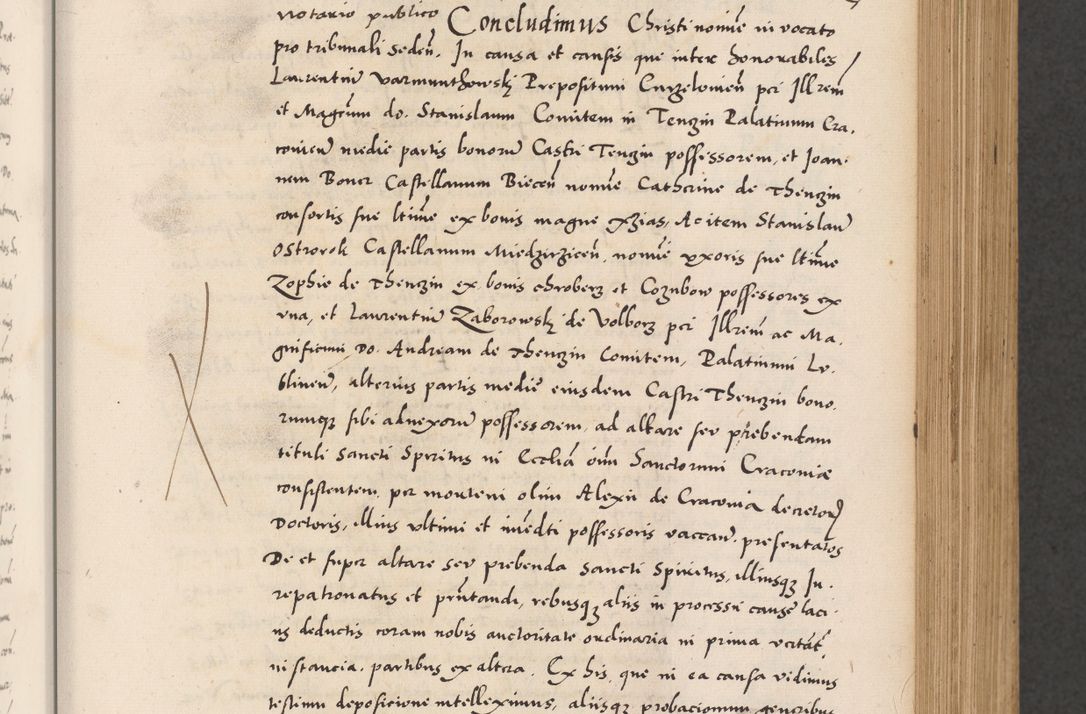 notario publico Concludimus Christi nomīe in vocato
pro tribunali sedeñ. In causa et causis que inter honorabiles
Laurentiū Varmunthowskj Prepositum Curzelovieñ pēr Illrem
et Magcum do. Stanislaum Comitem in Tenczin Palatinum Cra,
covieñ medie partis bonorū Castri Tenczin possessorem, et Joan-
nem Boner Castellanum Bieceñ nomīe Catherine de Thenczin
consortis sue ltime ex bonis magne Ac item Stanislaū
Ostrorok Castellanum Miedzirziceñ, nomīe vxoris sue ltime
Zophie de Thenczin ex bonis chroberz et possessores ex
vna, et Laurentiū Zaborowskj de Volborz pēr Illrem ac Ma,
gnificum Do. Andream de Thenczin Comitem, Palatinum Lv-
blineñ, alterius partis medie eiusdem Castri Thenczin bono,
rumqȝ sibi adnexorū possessorem, ad altare sev prebendam
tituli Sancti Spiritus in Ecclīa oīm Sanctorum Cracoviæ
consistentem, per mortem olim Alexii de Cracovia decretorꝫ
Doctoris, illius vltimi et īmedti possessoris vaccañ. presentatos
De et super altare sev prebenda Sancti Spiritus, illiusqȝ Iu-
repatronatus et pñtandi, rebusqȝ aliis in processu cause laci-
us deductis coram nobis auctoritate ordinaria in prima
instancia, partibus ex altera, Ex his, que in ea causa vidimus
testium deposicione intelleximus, aliisqȝ probacionum generibus